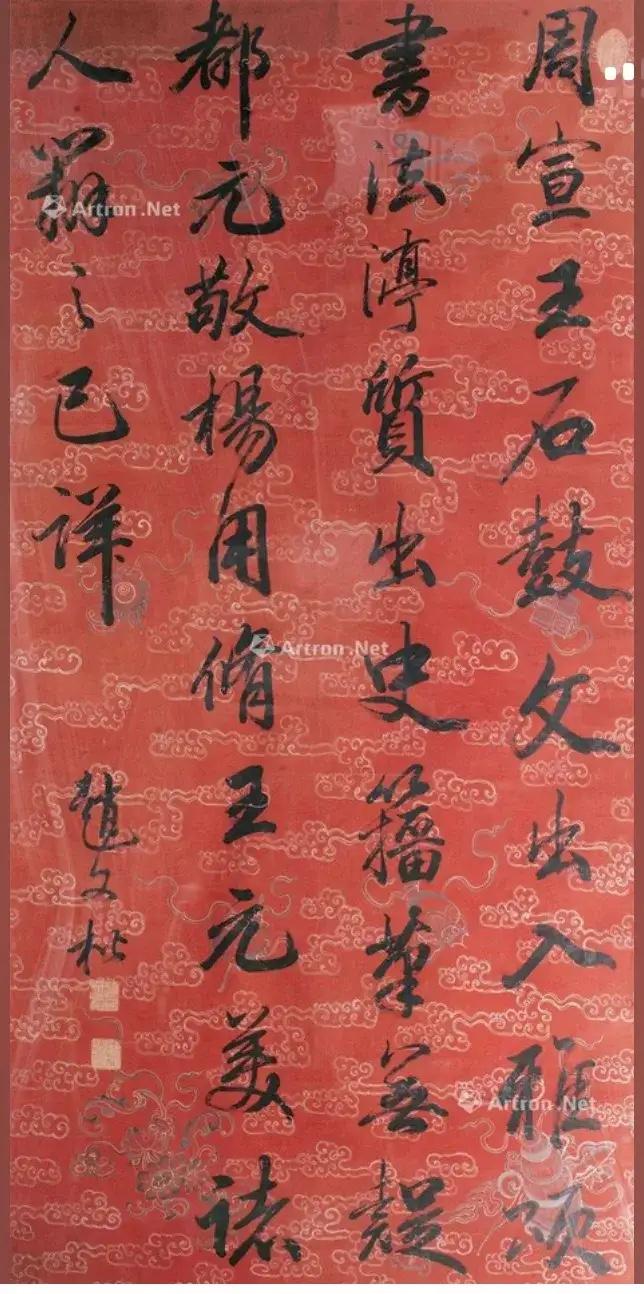 周宣王石鼓文出入雅頌
書法渟質出史籀筆無疑
都元敬楊用脩王元美諸
人之已詳
趙文楷
Artron .Net
Artron .Net
Artron .Net